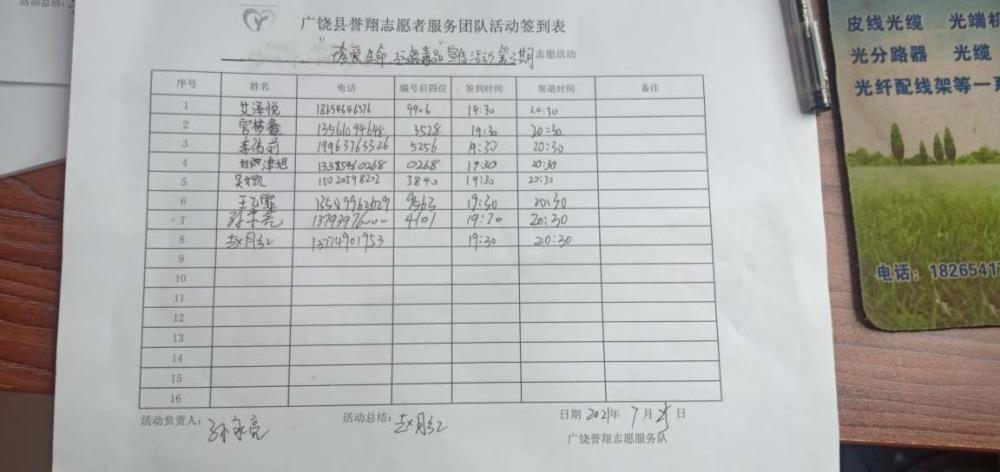 广饶县誉翔志愿者服务团队活动签到表
"珍爱生命 远离毒品"宣传活动第二期志愿活动
序号 姓名 电话 编号后四位 签到时间 签退时间 备注
1 艾泽悦 18254646376 9906 19:30 20:30
2 13561094648 3528 19:30 20:30
3 李倩莉 19963763326 5256 19:30 20:30
4 津旭 13385460268 0268 19:30 20:30
5 吴凯 15020598202 3840 19:30 20:30
6 王飞霏 9563 19:30 20:30
7 孙永亮 4101 19:30 20:30
8 赵月红 13774901953 19:30 20:30
9
10
11
12
13
14
15
16
活动负责人: 孙永亮 活动总结: 赵月红 日期 2021年 7月 25日
广饶誉翔志愿服务队
皮线光缆 光端机
光分路器 光缆
光纤配线架等一系
电话: 1826541